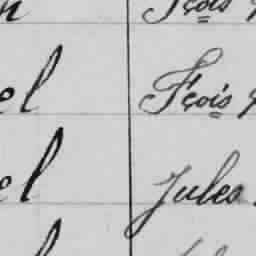 Fçois
el Fçois
el Jules